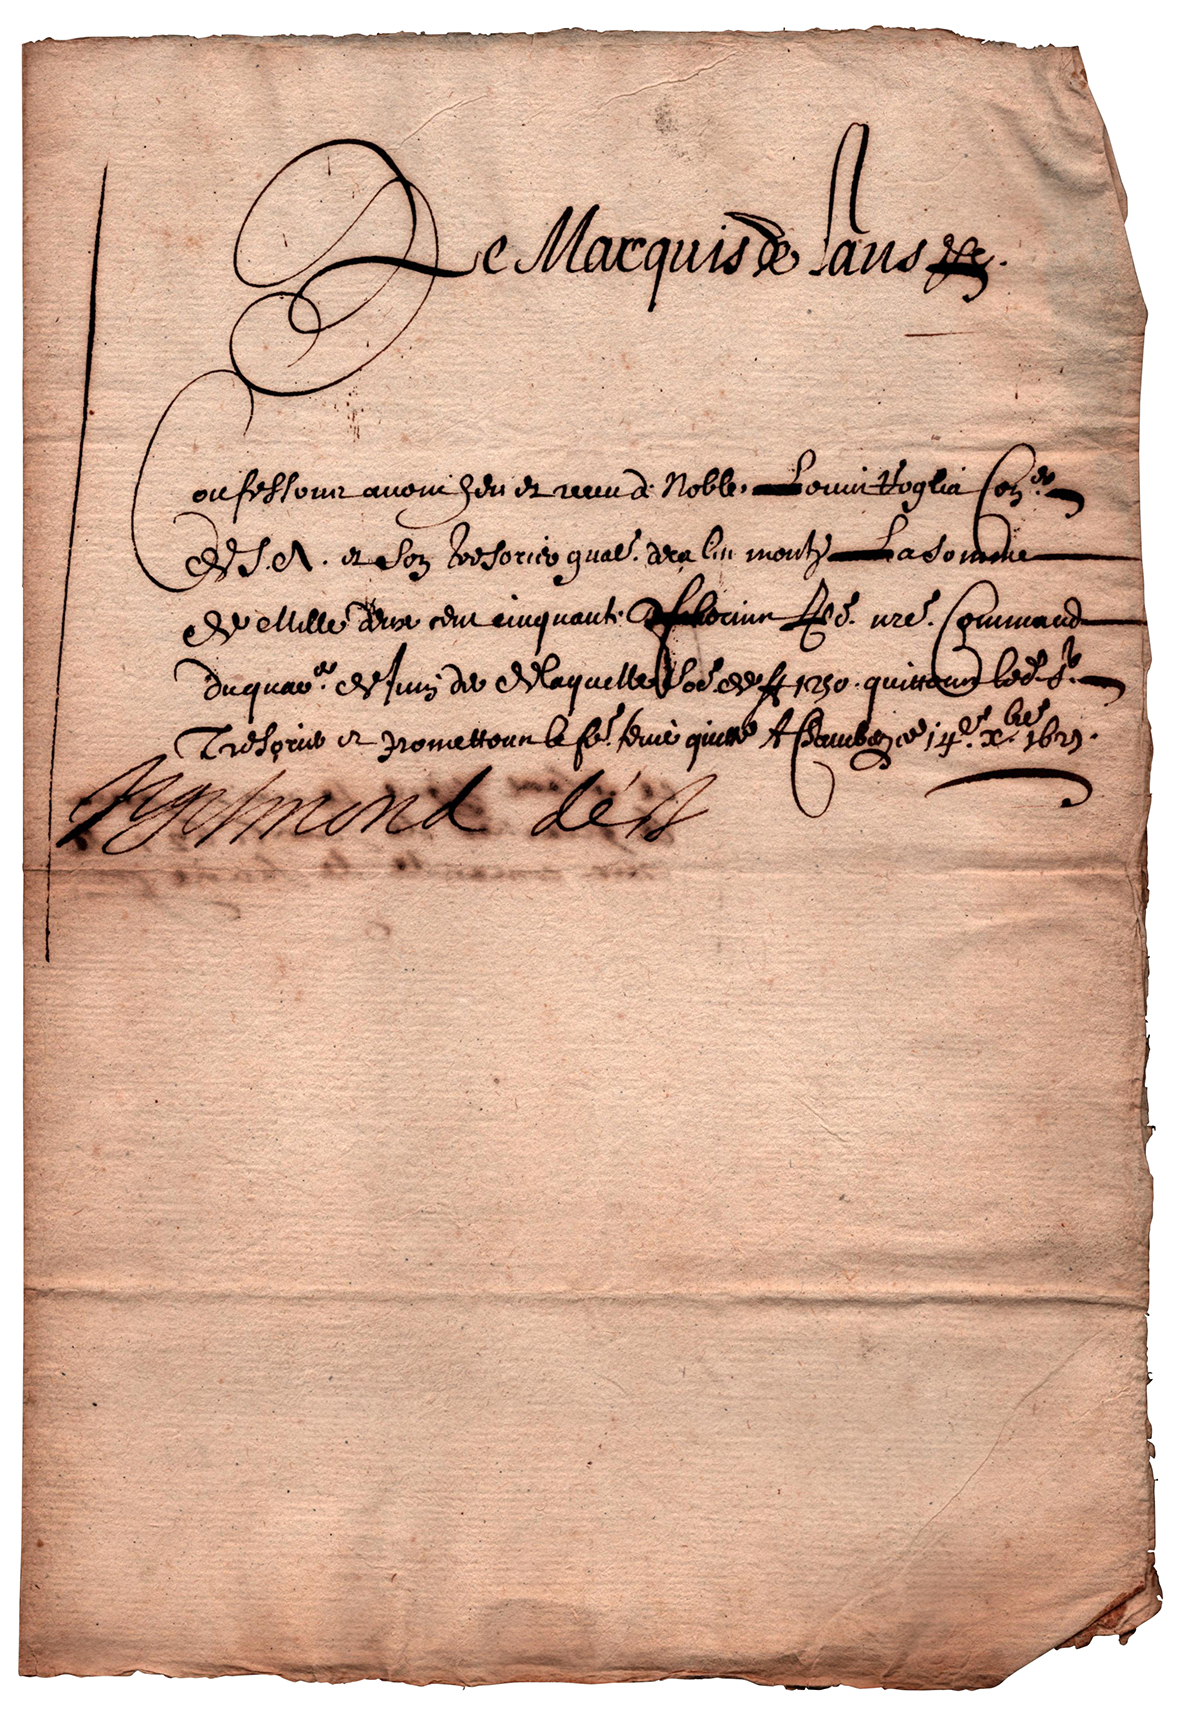 Le Marquis de Lans
Confessons avoir heu et receu de Noble Louis Voglia Con.er
de S. A. et son Tresorier gnal. deça les montz La somme
de Mille deux cent cinquante florins nre. Command
du quar. de Juin de laquelle so.e de ff 1250 quittons led. S.r
Tresorier et promettons le fe. tenir quitte A Chambery ce 14.e x.bre
Sigismond d'Est